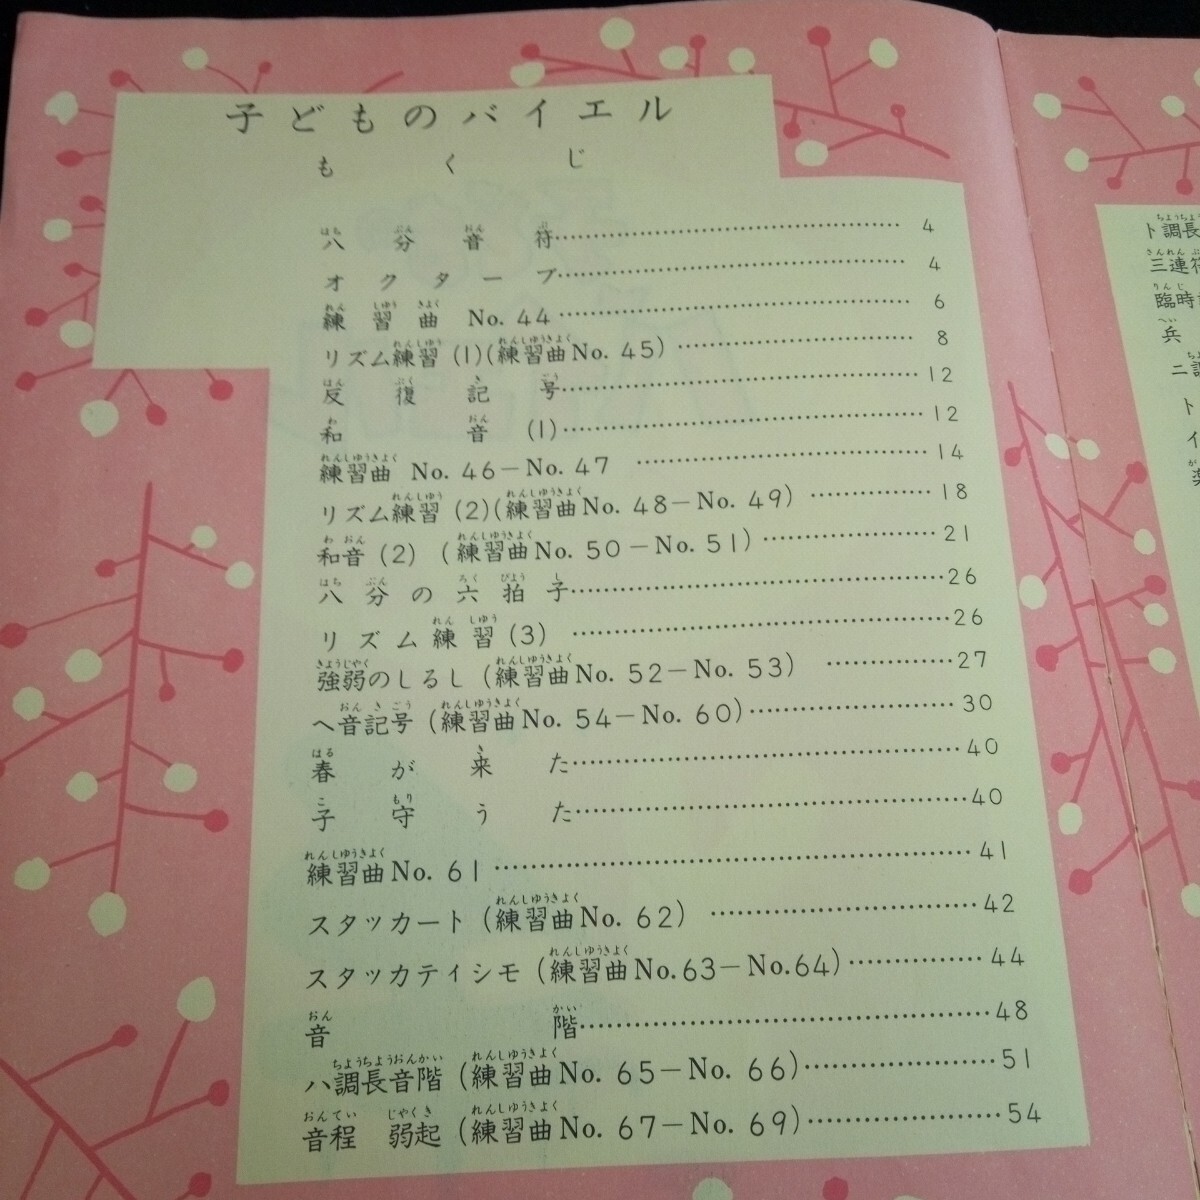 子どものバイエル
もくじ
八分音符……4
オクターブ……4
練習曲 No. 44……6
リズム練習 (1)(練習曲No. 45)……8
反復記号……12
和音 (1)……12
練習曲 No. 46－No. 47……14
リズム練習 (2)(練習曲No. 48－No. 49)……18
和音 (2) (練習曲No. 50－No. 51)……21
八分の六拍子……26
リズム練習 (3)……26
強弱のしるし (練習曲No. 52－No. 53)……27
ヘ音記号 (練習曲No. 54－No. 60)……30
春が来た……40
子守うた……40
練習曲No. 61……41
スタッカート (練習曲No. 62)……42
スタッカティシモ (練習曲No.63－No.64)……44
音階……48
ハ調長音階 (練習曲No. 65－No. 66)……51
音程 弱起 (練習曲No. 67－No. 69)……54
ト調長
三連符
臨時
兵
ニ調
ト
イ